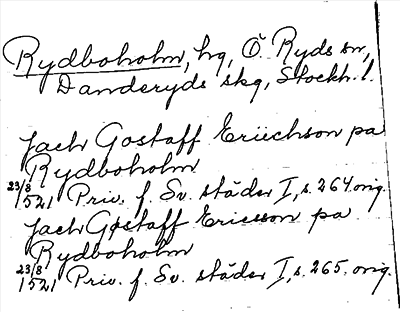 Rydboholm, hg, Ö. Ryds sn,
Danderyds skg, Stockh. l.
Jach Gostaff Eriichson pa
Rydboholm
23/8 1521 Priv. f. Sv. städer I, s. 264. orig.
Jach Gostaff Ericsson pa
Rydboholm
23/8 1521 Priv. f. Sv. städer I, s. 265. orig.